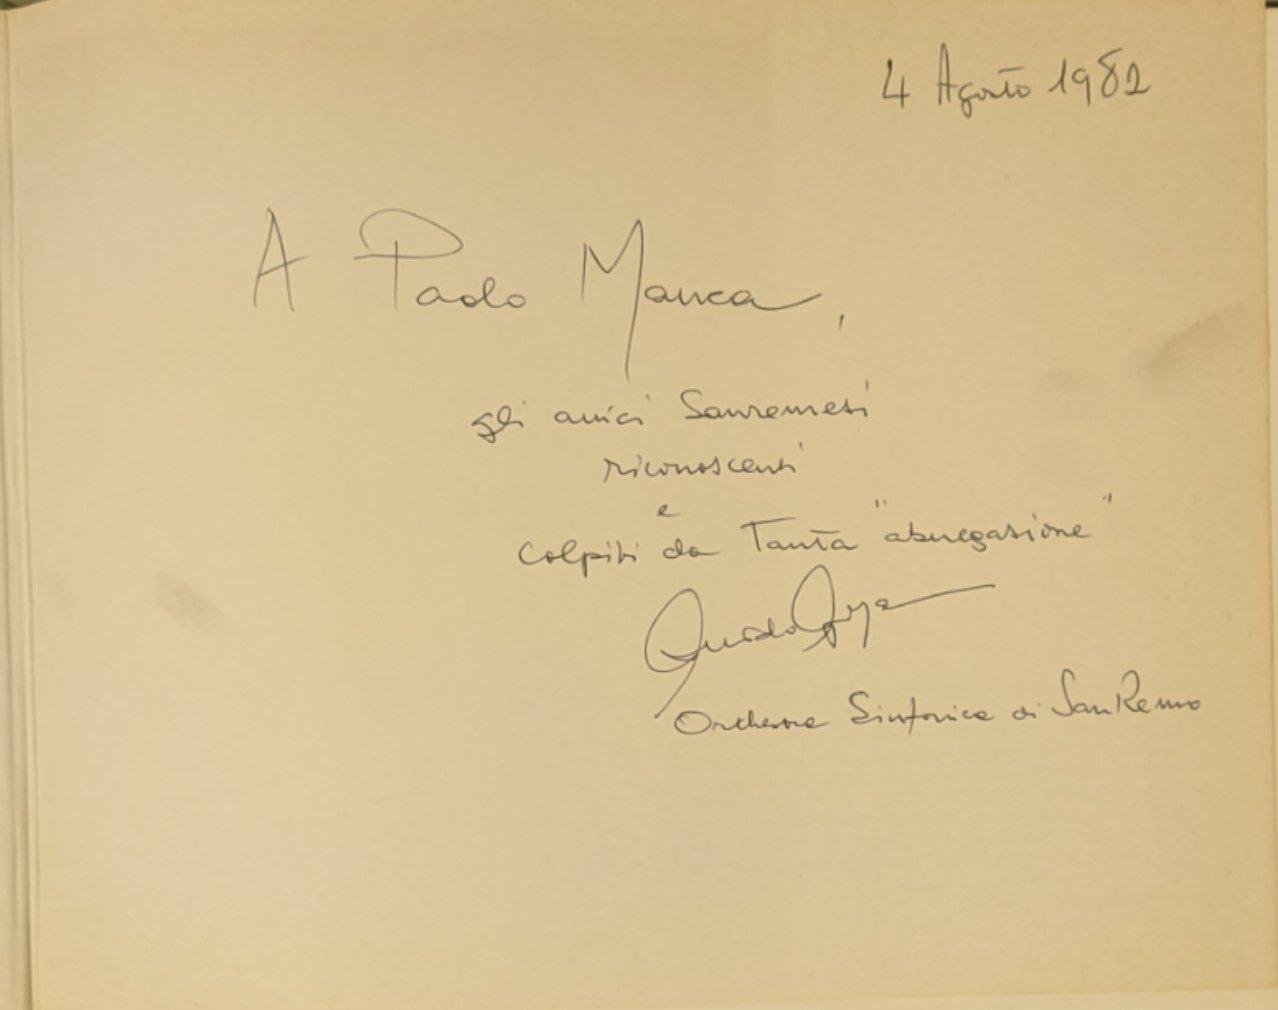 4 Agosto 1982
A Paolo Manca,
gli amici Sanremesi
riconoscenti
e
colpiti da Tanta "abnegazione"
Guido
Orchestra Sinfonica di San Remo